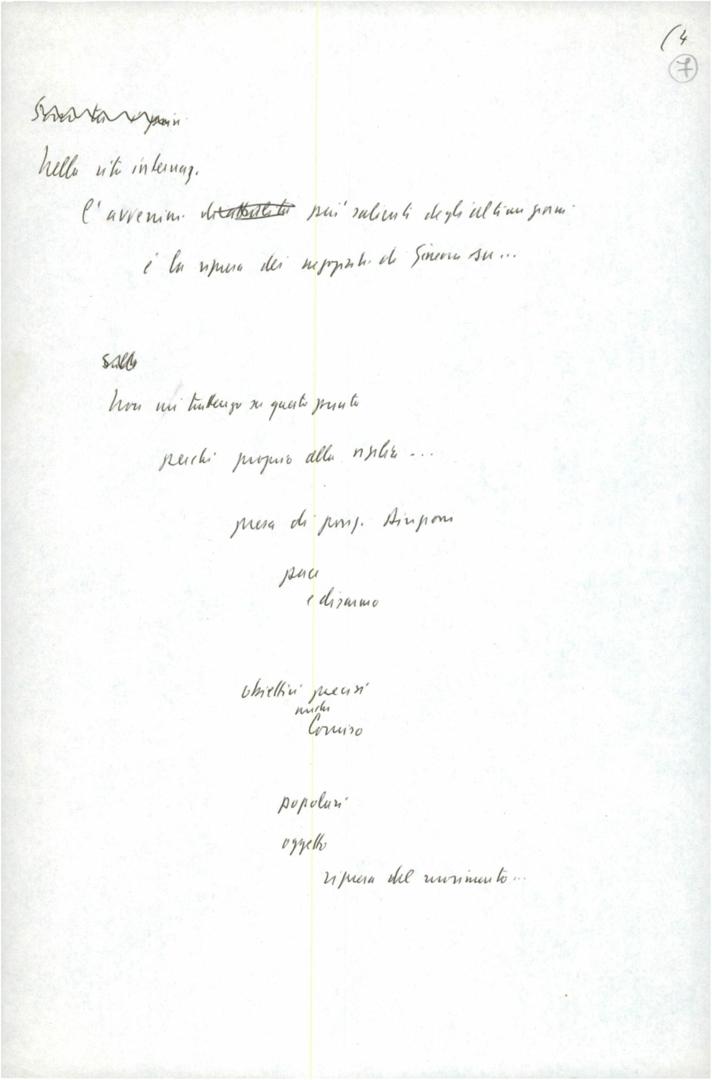 (4
7
Nella vita internaz.
l'avvenim. più salienti degli ultimi giorni
è la ripresa dei negoziati di Ginevra su...
Non mi trattengo su questo punto
perché proprio alla vigilia ...
presa di posiz.
pace
e disarmo
obiettivi precisi
Comiso
popolari
oggetto
ripresa del movimento...